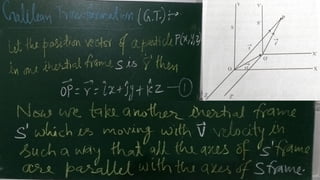 Galilean Transformation (G.T.) :→
Let the position vector of a particle P(x,y,z)
in one inertial frame S is r⃗ then
OP = r⃗ = ix + jy + kz — ①
Now we take another inertial frame
S' which is moving with V⃗ velocity in
such a way that all the axes of S' frame
are parallel with the axes of S frame.